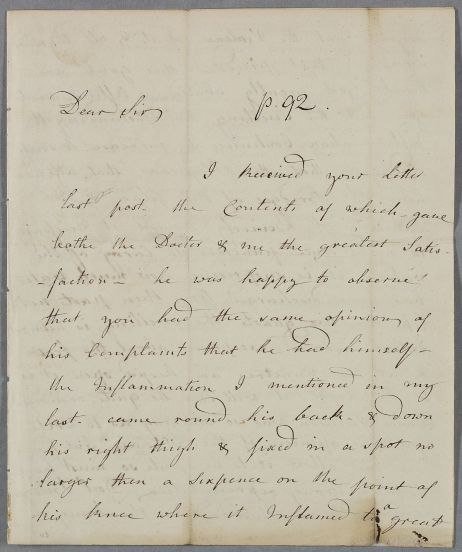 Dear Sir p. 92.
I Received your Letter
last post - the Contents of which - gave
bothe the Doctor & me the greatest Satis-
-faction - he was happy to observe
that you had the same opinion of
his Complaints that he had himself -
the Inflammation I mentioned in my
last - came round his back - & down
his right thigh & fixed in a spot no
larger then a Sixpence on the point of
his knee where it Inflamed to a great